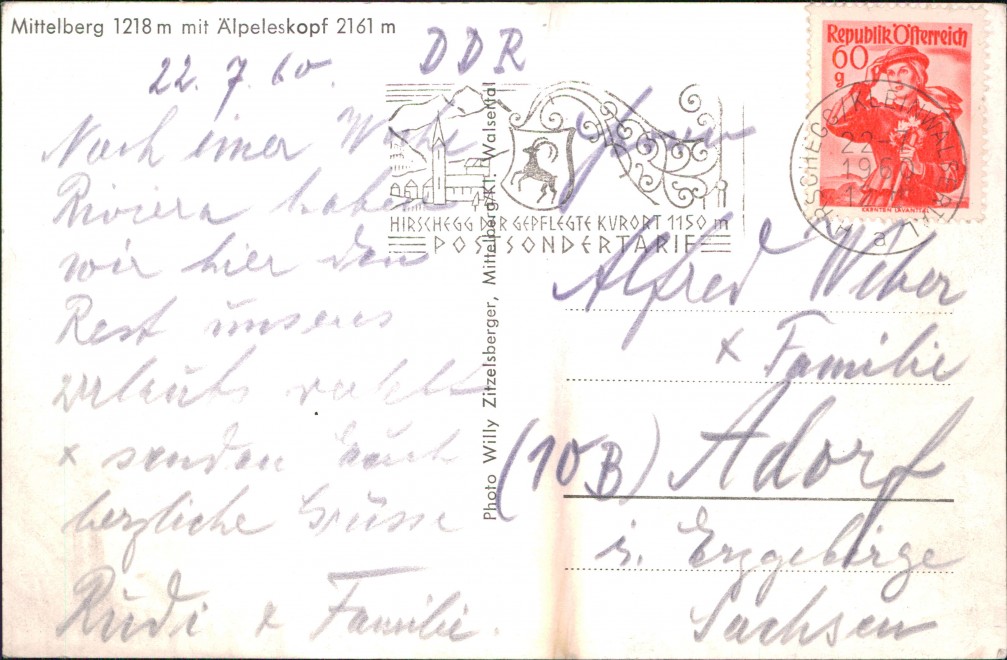 Mittelberg 1218 m mit Älpeleskopf 2161 m
22. 7. 60.
Nach einer Woche
Riviera haben
wir hier den
Rest unseres
Urlaubs verlebt
x senden Euch
herzliche Grüsse
Rudi x Familie.
Photo Willy Zitzelsberger, Mittelberg/Kl. Walsertal
DDR
HIRSCHEGG DER GEPFLEGTE KURORT 1150 m
POSTSONDERTARIF
Republik Österreich
60
g
KÄRNTEN LAVANTTAL
HIRSCHEGG/KLEINWALSERTAL
22.
1960
a
Herrn
Alfred Weber
x Familie
(10B) Adorf
i. Erzgebirge
Sachsen